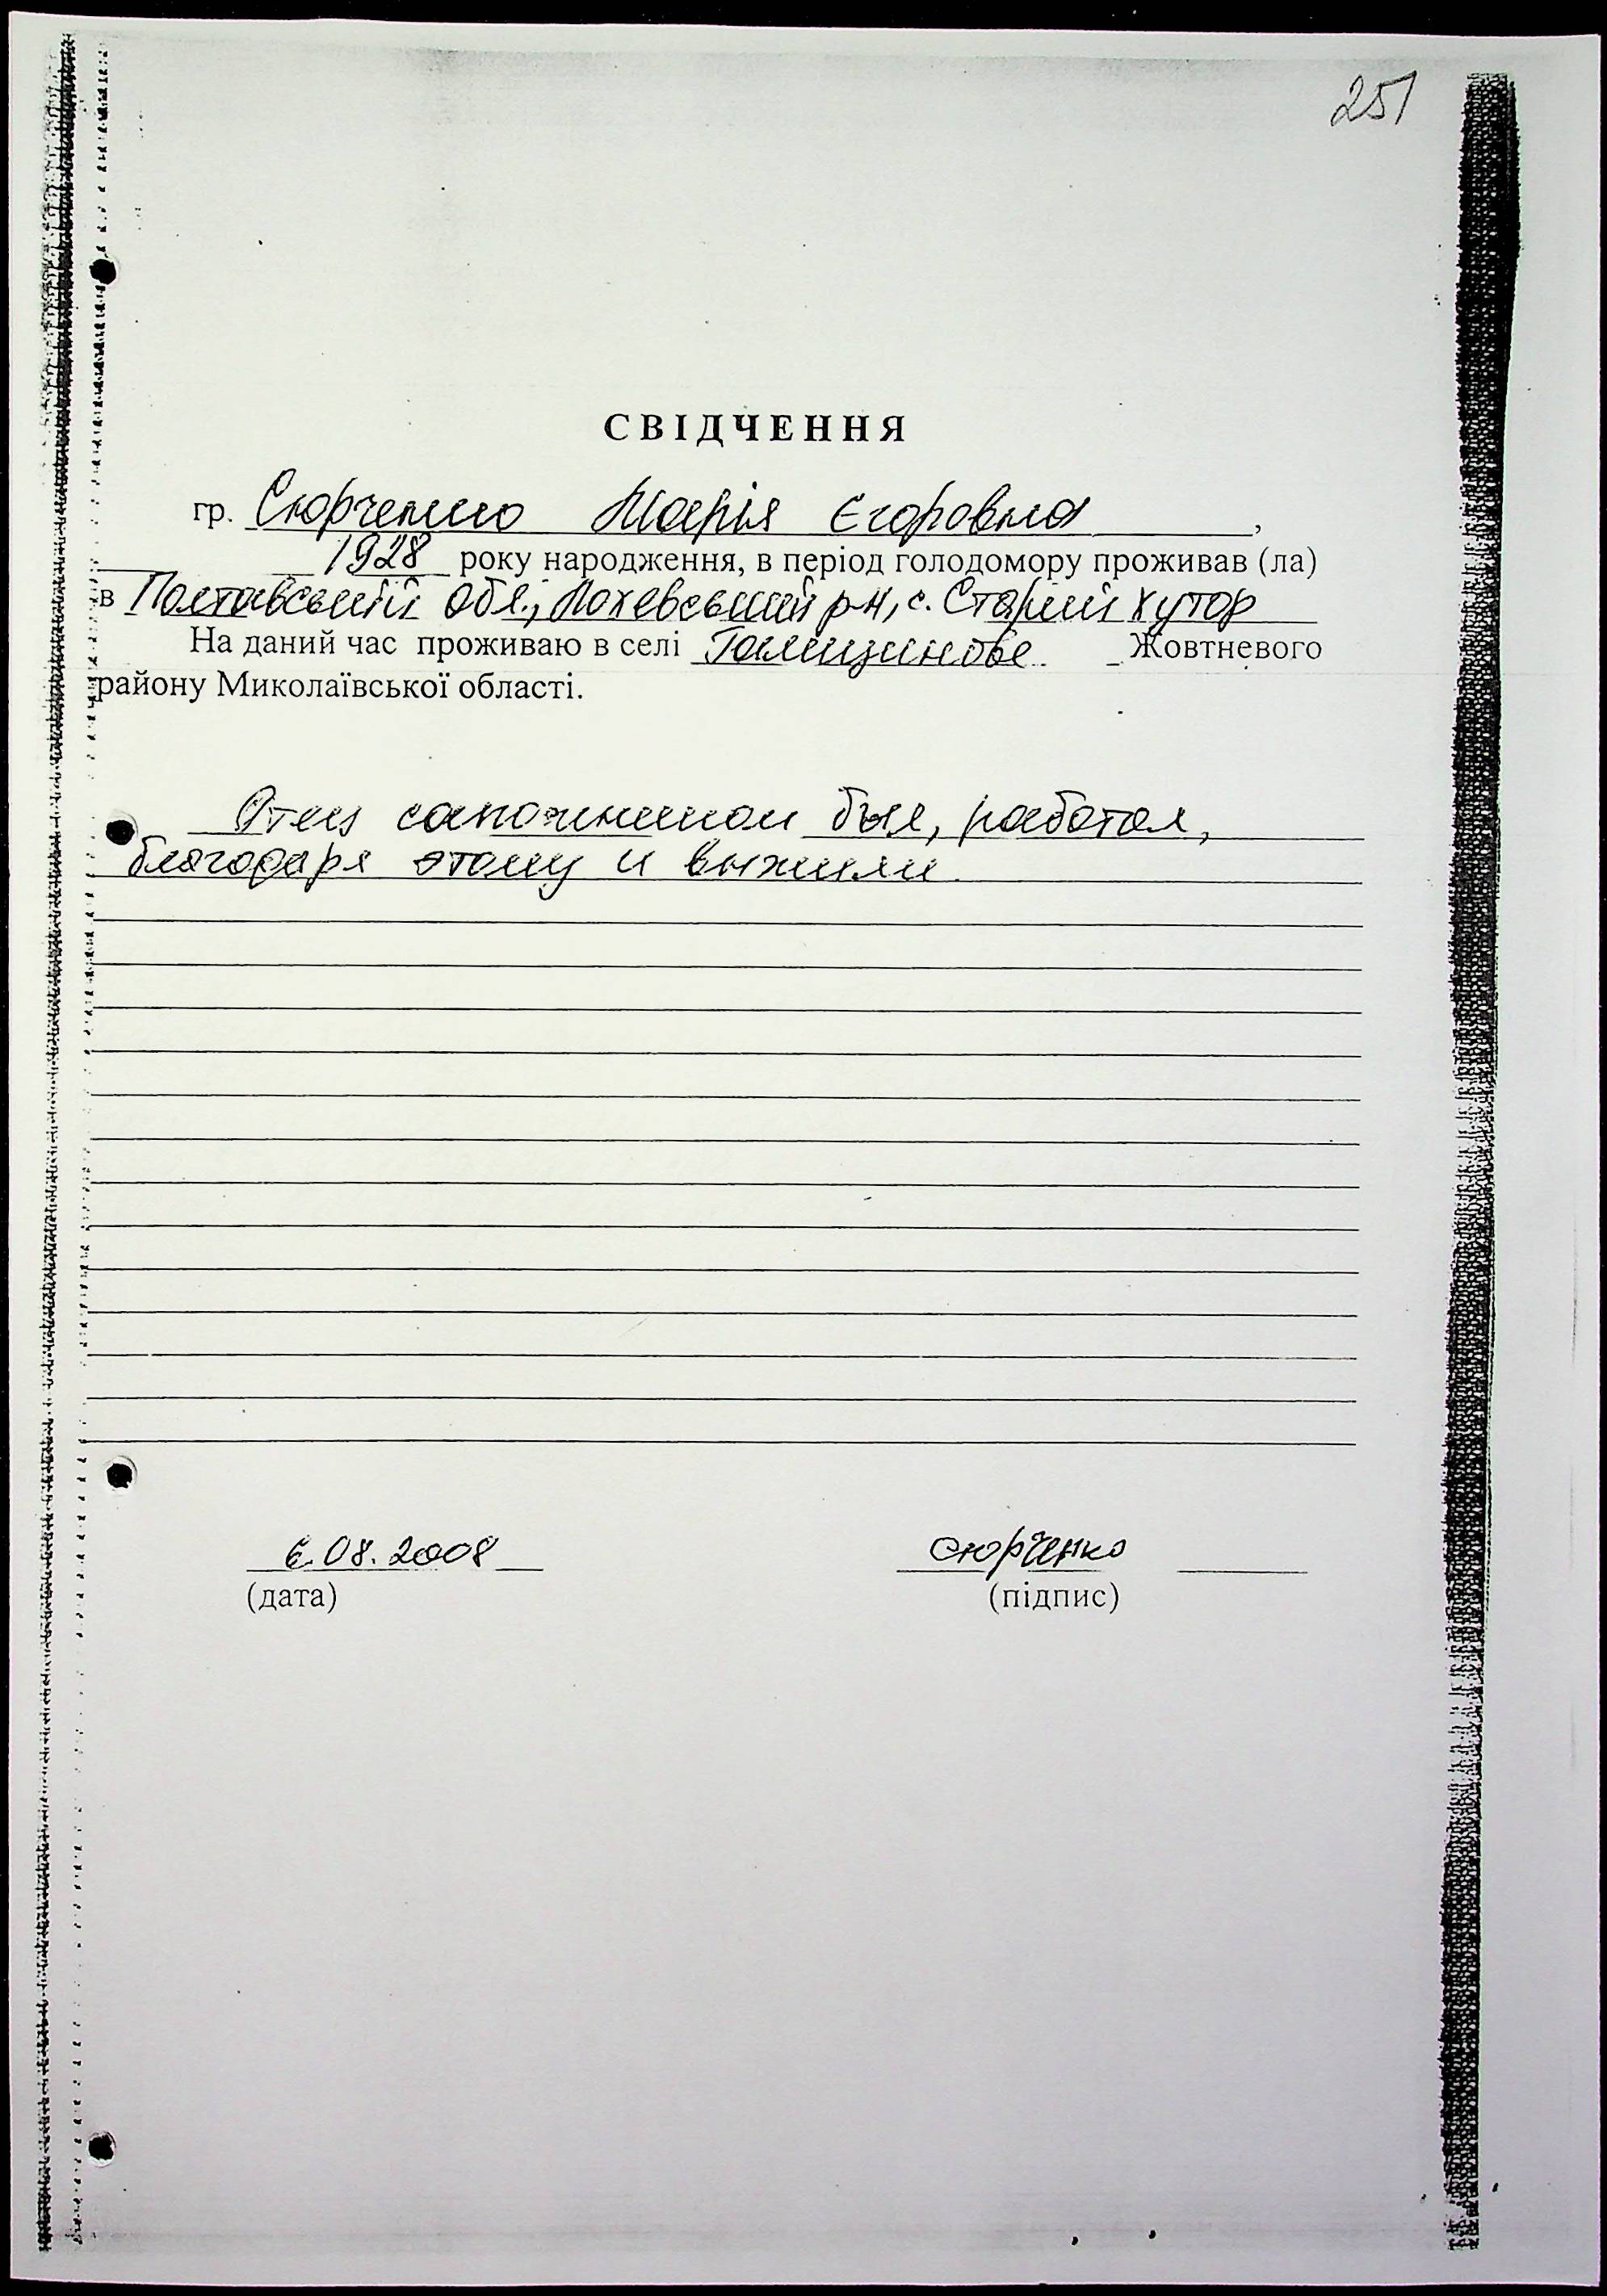 251
СВІДЧЕННЯ
гр. Сюрченко Марія Єгоровна,
1928 року народження, в період голодомору проживав (ла)
в Полтавській обл., Лохевський р-н, с. Старий хутор
На даний час проживаю в селі Галицинове Жовтневого
району Миколаївської області.
Отец сапожником был, работал,
благодаря этому и выжили.
6.08.2008 сюрченко
(дата) (підпис)